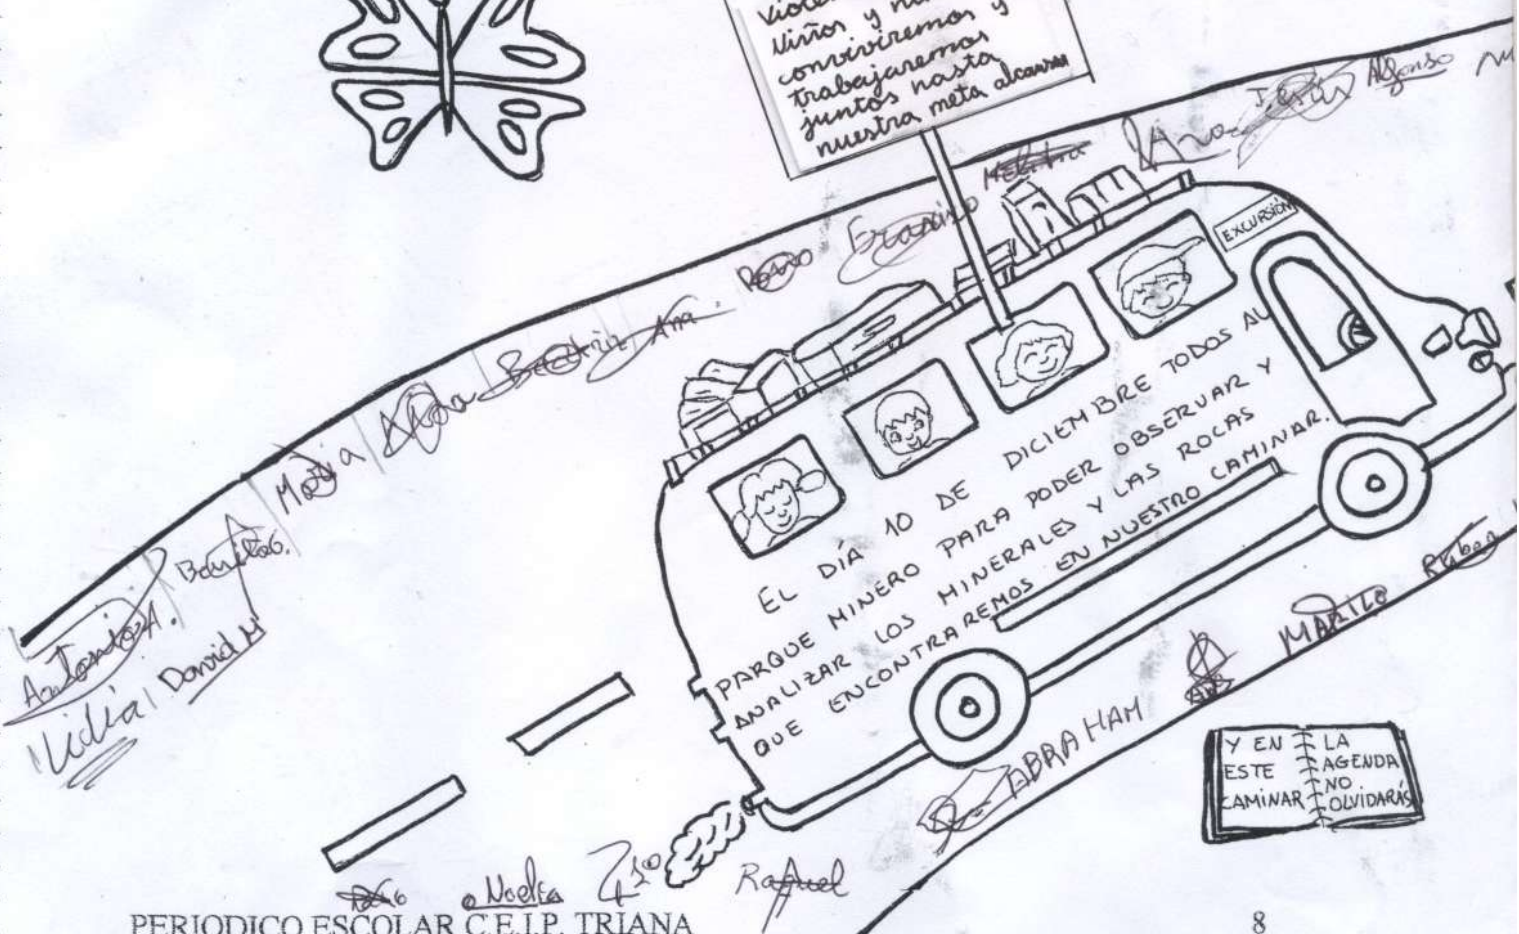 Niños y
conviviremos y
trabajaremos
juntos hasta
nuestra meta alcanzar
Jesús Alfonso
Ana
Melania
Erasmo
EXCURSIÓN
Ana
Beatriz
María
David M
Lidia
Antonio A.
EL DÍA 10 DE DICIEMBRE TODOS AL
PARQUE MINERO PARA PODER OBSERVAR Y
ANALIZAR LOS MINERALES Y LAS ROCAS
QUE ENCONTRAREMOS EN NUESTRO CAMINAR.
Ruben
MARILO
ABRAHAM
Y EN LA
ESTE AGENDA
CAMINAR NO
OLVIDARÁS
Noelia
Raquel
PERIODICO ESCOLAR C.E.I.P. TRIANA
8